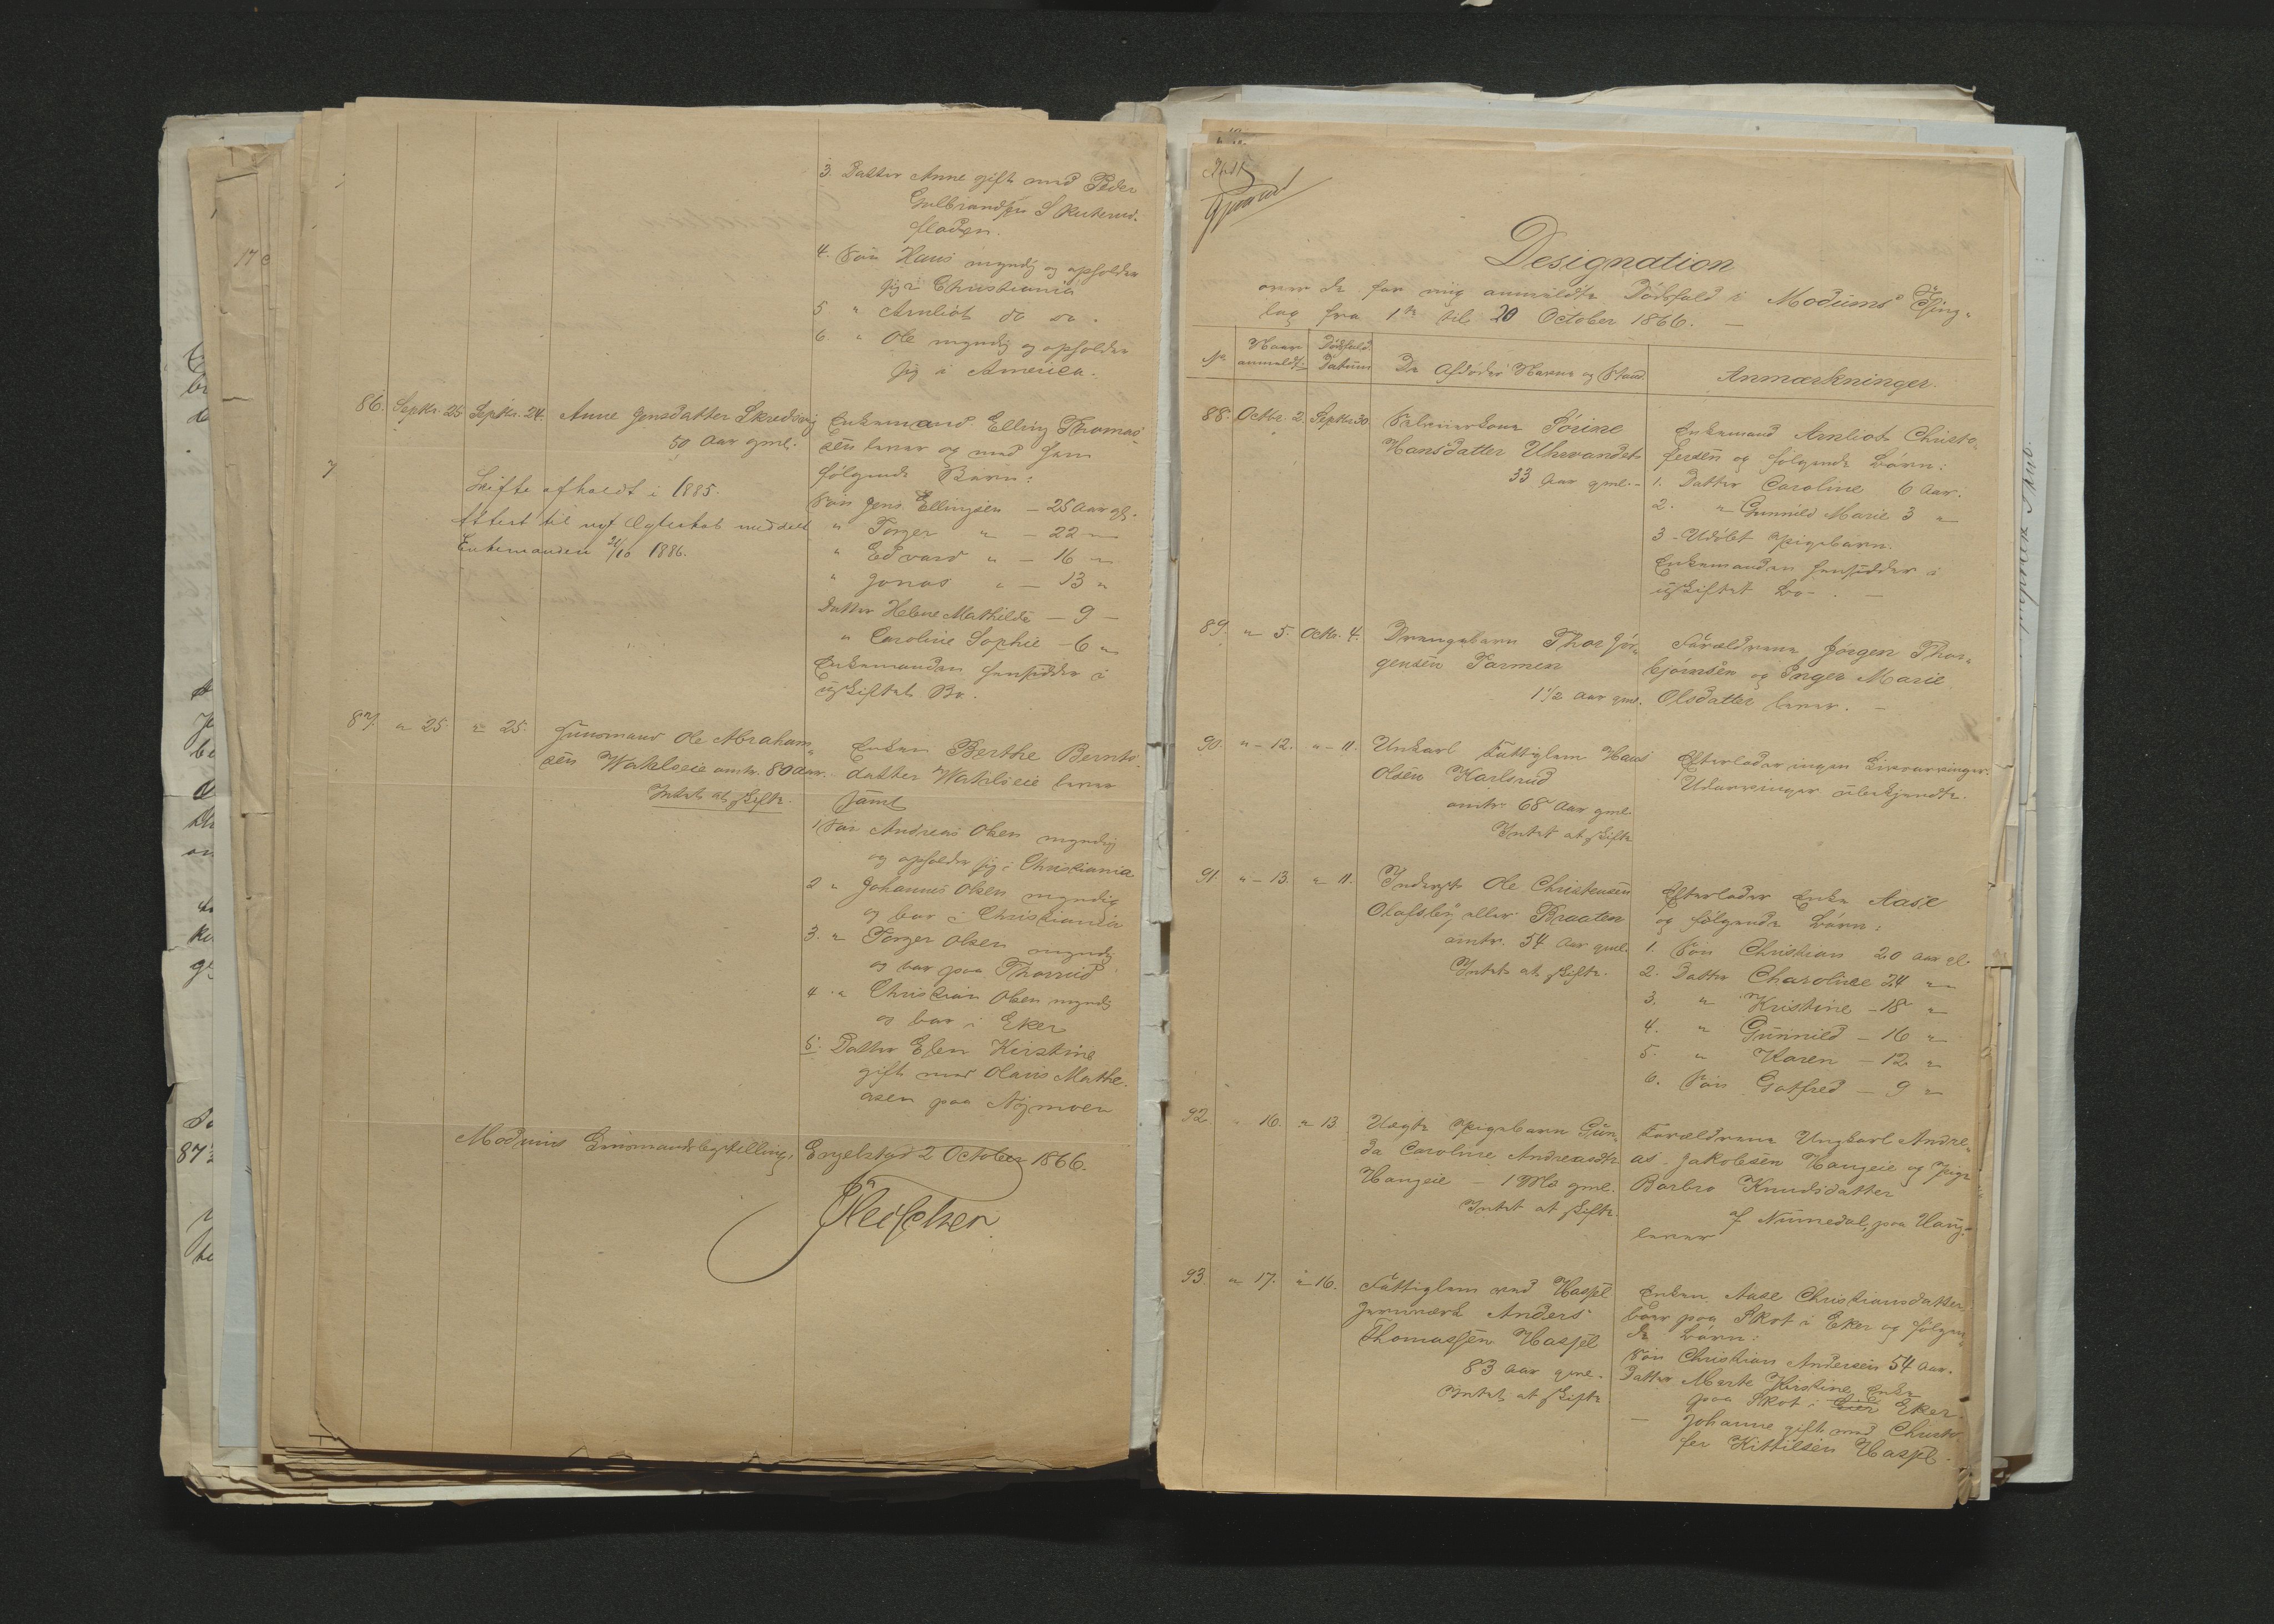 3. Datter Anne gift med Peder
Gulbrandsen Skuterud-
fladen.
4. Søn Hans myndig og opholder
sig i Christiania
5 " Arnliot do do.
6 " Ole myndig og opholder
sig i America.
86. Septbr. 25 Septbr. 24. Anne Jensdatter Skredsvig
50 Aar gml.
Skifte afholdt i 1885.
Attest til nyt Ægteskab meddelt
Enkemanden 1886.
Enkemand Elling Thomas-
sen lever og med ham
følgende Børn:
Søn Jens Ellingsen – 25 Aar gl.
" Torger " – 22 "
" Edvard " – 16 "
" Jonas " – 13 "
Datter Helene Mathilde – 9 –
" Caroline Sophie – 6 "
Enkemanden hensidder i
uskiftet Bo.
87. " 25. " 25. Huusmand Ole Abraham-
sen Wahlseie omtr. 80 Aar.
Intet at skifte.
Enken Berthe Bernts-
datter Wahlseie lever
samt
1 Søn Andreas Olsen myndig
og opholder sig i Christiania
2 " Johannes Olsen myndig
og boer i Christiania
3. " Torger Olsen myndig
og boer paa
4. " Christian Olsen myndig
og boer i Eker
5. Datter Elen Kirstine
gift med Olavis Mathe-
asen paa Nymoen
Modums Lensmandsbestilling, Engelstad 2 October 1866.
Designation
over de for mig anmeldte Dødsfald i Modums Thing-
lag fra 1te til 20 October 1866. –
No
Naar
anmeldt
Dødsfald
Datum
De Afdødes Navne og Stand.
Anmærkninger.
88. Octbr. 2. Septbr 30. Sørine
Hansdatter
33 Aar gml. –
Enkemand Arnliot Christo-
fersen og følgende Børn:
1. Datter Caroline 6 Aar.
2. " Gunnild Marie 3 "
3 – Udøbt Pigebarn.
Enkemanden hensidder i
uskiftet Bo. –
89. " 5. Octbr. 4. Drengebarn Thor Jør-
gensen
1 1/2 Aar gml.
Forældrene Jørgen Thor-
bjørnsen og Inger Marie
Olsdatter lever. –
90. " – 12. " – 11. Ungkarl Fattiglem Hans
Olsen Karlsrud
omtr. 68 Aar gml.
Intet at skifte
Efterlader ingen Livsarvinger.
Udarvinger ubekjendte.
91. " – 13. " 11. Inderst Ole Christensen
Olafsby eller Braaten
omtr. 54 Aar gml.
Intet at skifte.
Efterlader Enke Aase
og følgende Børn:
1. Søn Christian 20 Aar gl.
2. Datter Charoline 24 "
3. " Kristine – 18 "
4. " Gunnild – 16 "
5. " Karen – 12 "
6. Søn Gotfred – 9 "
92 " 16. " 13 Uægte Pigebarn Gun-
da Caroline Andreasdtr
Haugeie – 1 Md gml.
Intet at skifte.
Forældrene Ungkarl Andre-
as Jakobsen Haugeie og Pige
Barbro Knudsdatter
af Numedal, paa Haug-
lever
93 " 17. " 16. Fattiglem ved Hassel
Jernværk Anders
Thomassen Hassel
83 Aar gml.
Intet at skifte
Enken Aase Christiansdatter
boer paa Skot i Eker og følgen-
de Børn:
Søn Christian Andersen 54 Aar.
Datter Marte Kirstine Enke
paa Skot i Eker.
– Johanne gift med Christo-
fer Kittilsen Hassel.